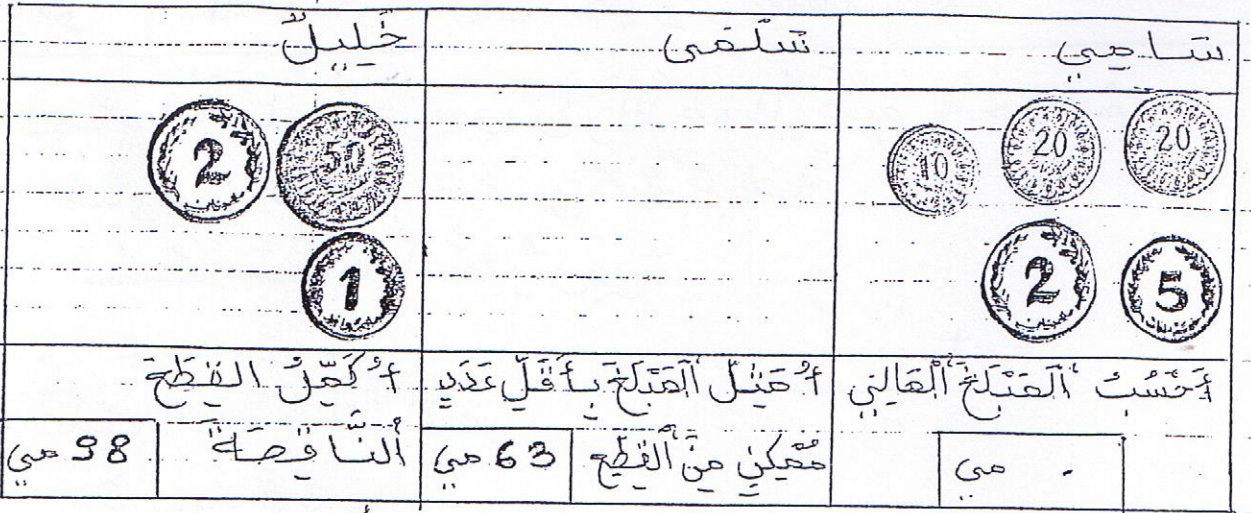 سَامِي
سَلْمَى
خَلِيلٌ
20 20 10
5 2
50 2
1
أَحْسُبُ الْمَبْلَغَ الْمَالِيَّ
. مي
أُمَثِّلُ الْمَبْلَغَ بِأَقَلِّ عَدَدٍ
مُمْكِنٍ مِنَ الْقِطَعِ
63 مي
أُكَمِّلُ الْقِطَعَ
النَّاقِصَةَ
98 مي